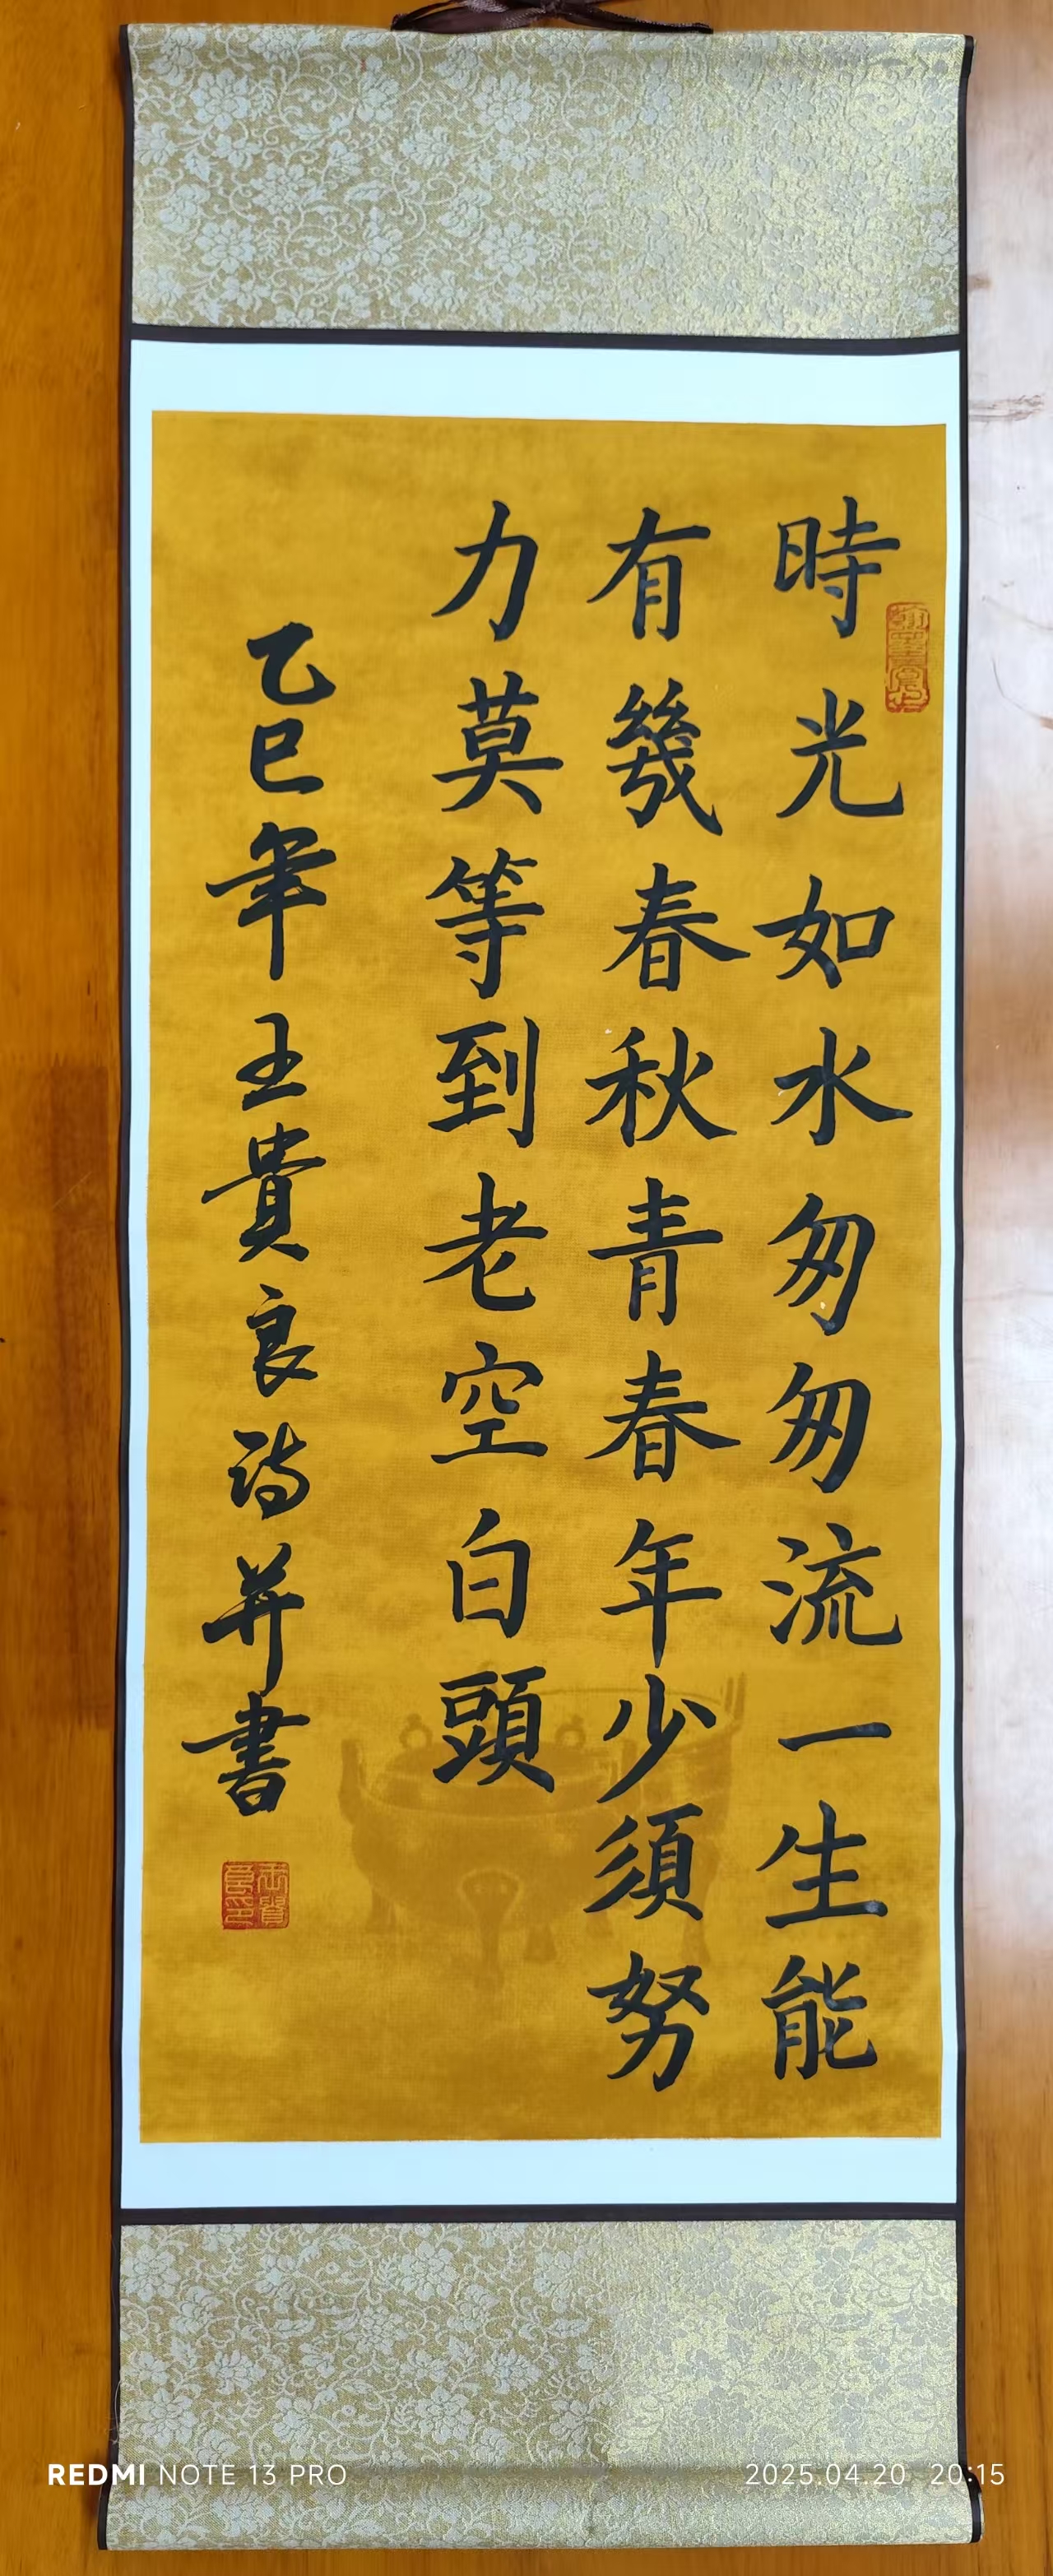 時光如水匆匆流一生能
有幾春秋青春年少須努
力莫等到老空白頭
乙巳年王貴良詩并書
REDMI NOTE 13 PRO
2025.04.20 20:15